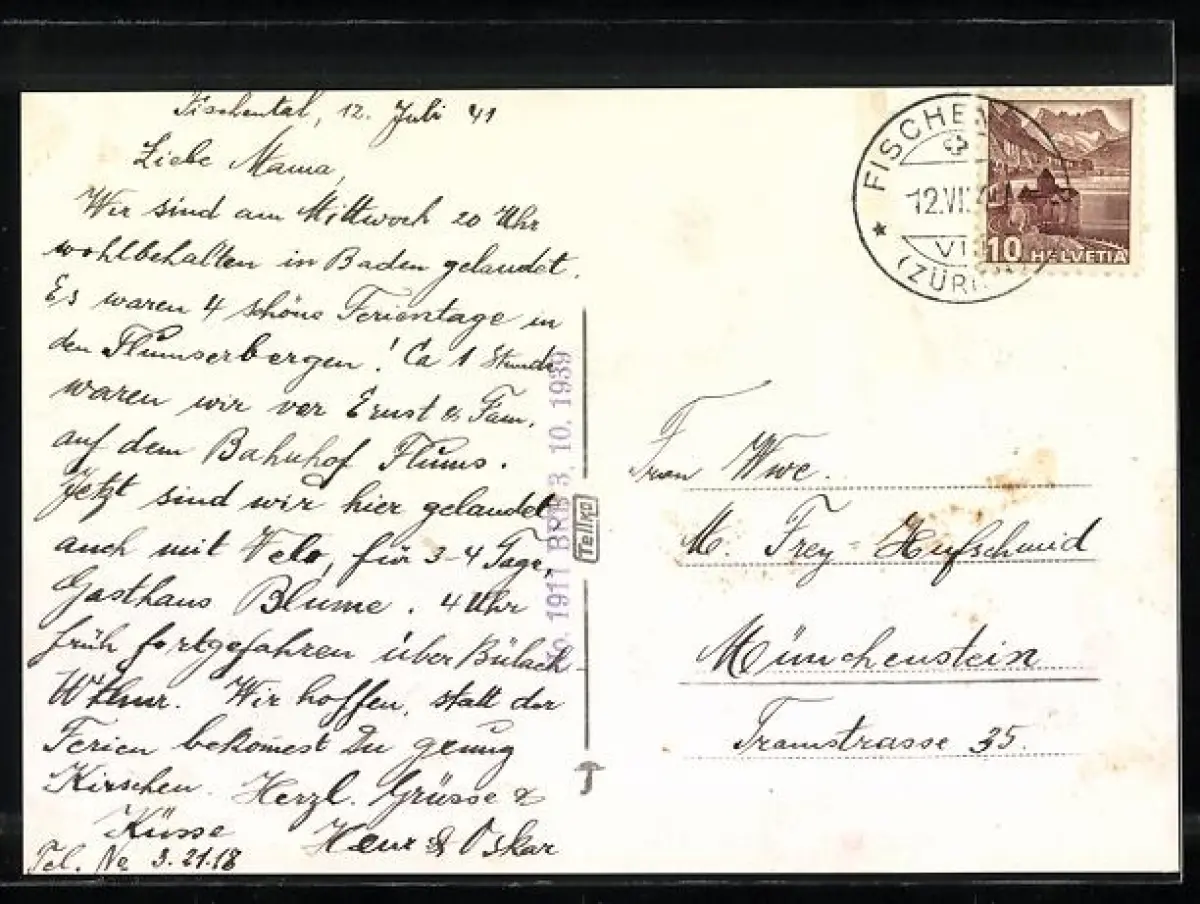 Fischental, 12. Juli 41
Liebe Mama,
Wir sind am Mittwoch 20 Uhr
wohlbehalten in Baden gelandet.
Es waren 4 schöne Ferientage in
den Flumserbergen! Ca 1 Stunde
waren wir vor Ernst & Fam.
auf dem Bahnhof Flums.
Jetzt sind wir hier gelandet
auch mit Velo, für 3-4 Tage,
Gasthaus Blume. 4 Uhr
früh fortgefahren über Bülach-
W'thur. Wir hoffen, statt der
Ferien bekomest Du genug
Kirschen. Herzl. Grüsse &
Küsse Heur & Oskar
Tel. No 3.21.18
1911 BRB 3. 10. 1939
Tellko
FISCHEN
12.VII.41
VI
(ZÜRI
10 HELVETIA
Frau Wwe.
M. Frey-Hufschmid
Münchenstein
Tramstrasse 35.